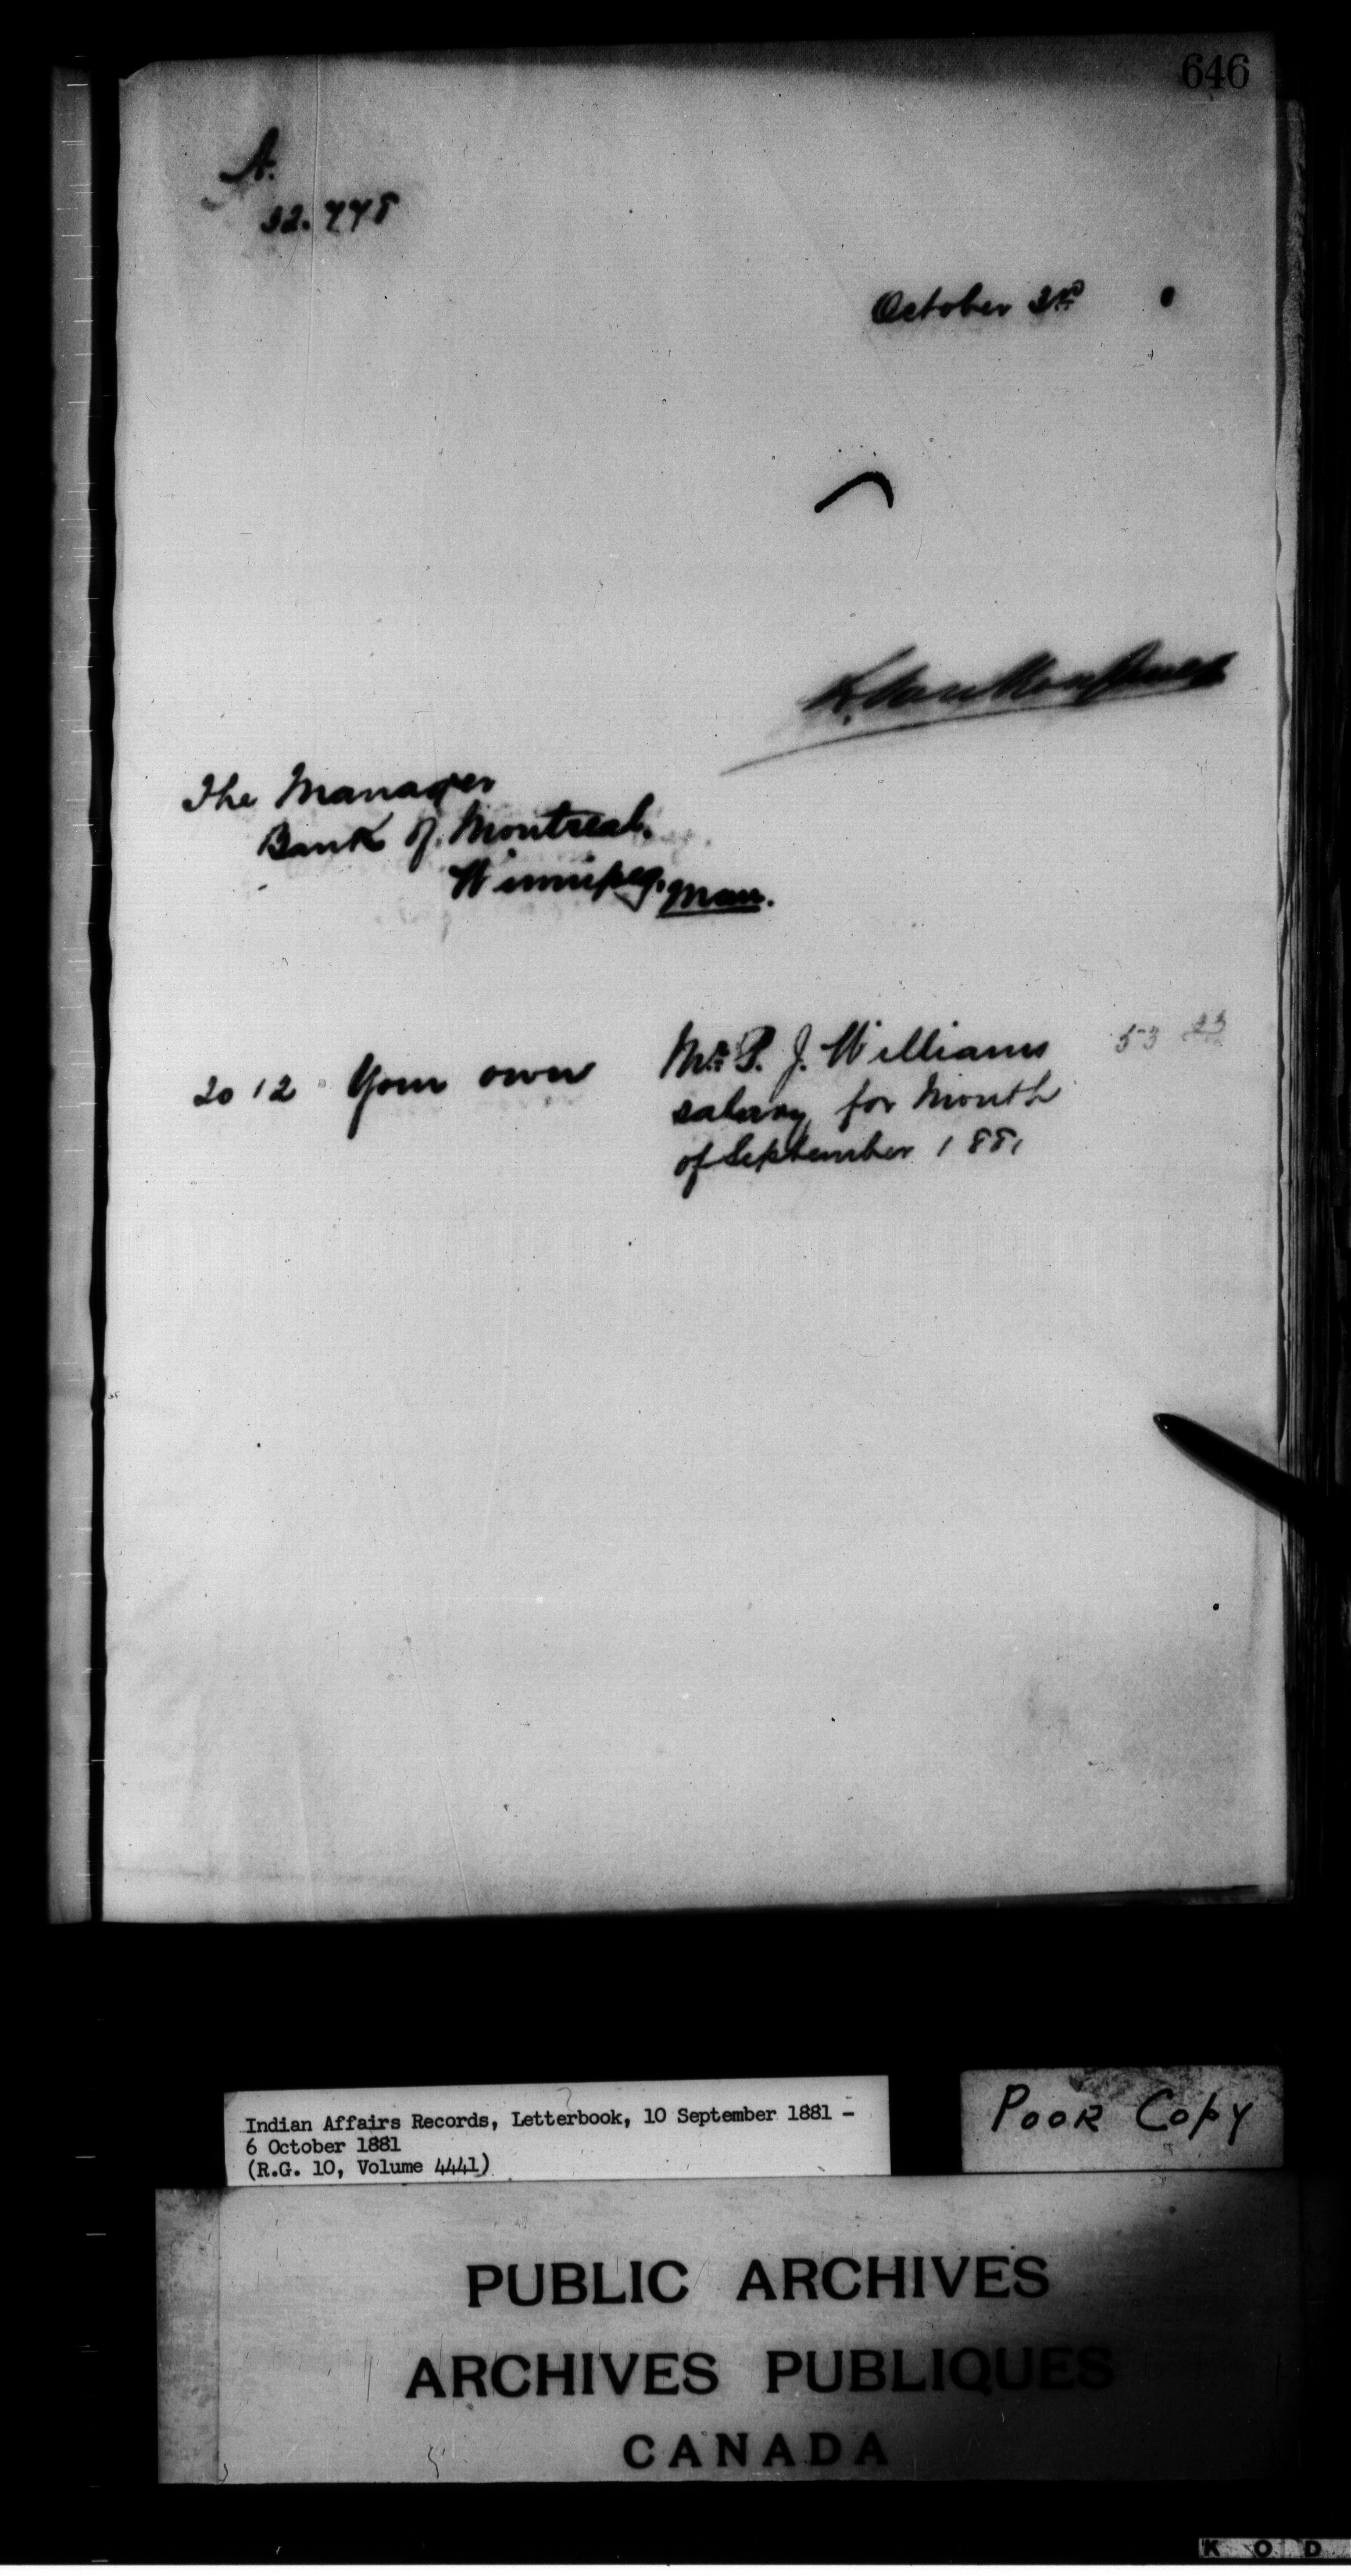 646
A.
October 3rd
The Manager
Bank of Montreal,
Winnipeg. Man.
2012 Your own Mr. P. J. Williams 53 23
salary for Month
of September 1881
Indian Affairs Records, Letterbook, 10 September 1881 -
6 October 1881
(R.G. 10, Volume 4441)
POOR COPY
PUBLIC ARCHIVES
ARCHIVES PUBLIQUES
CANADA
K O D